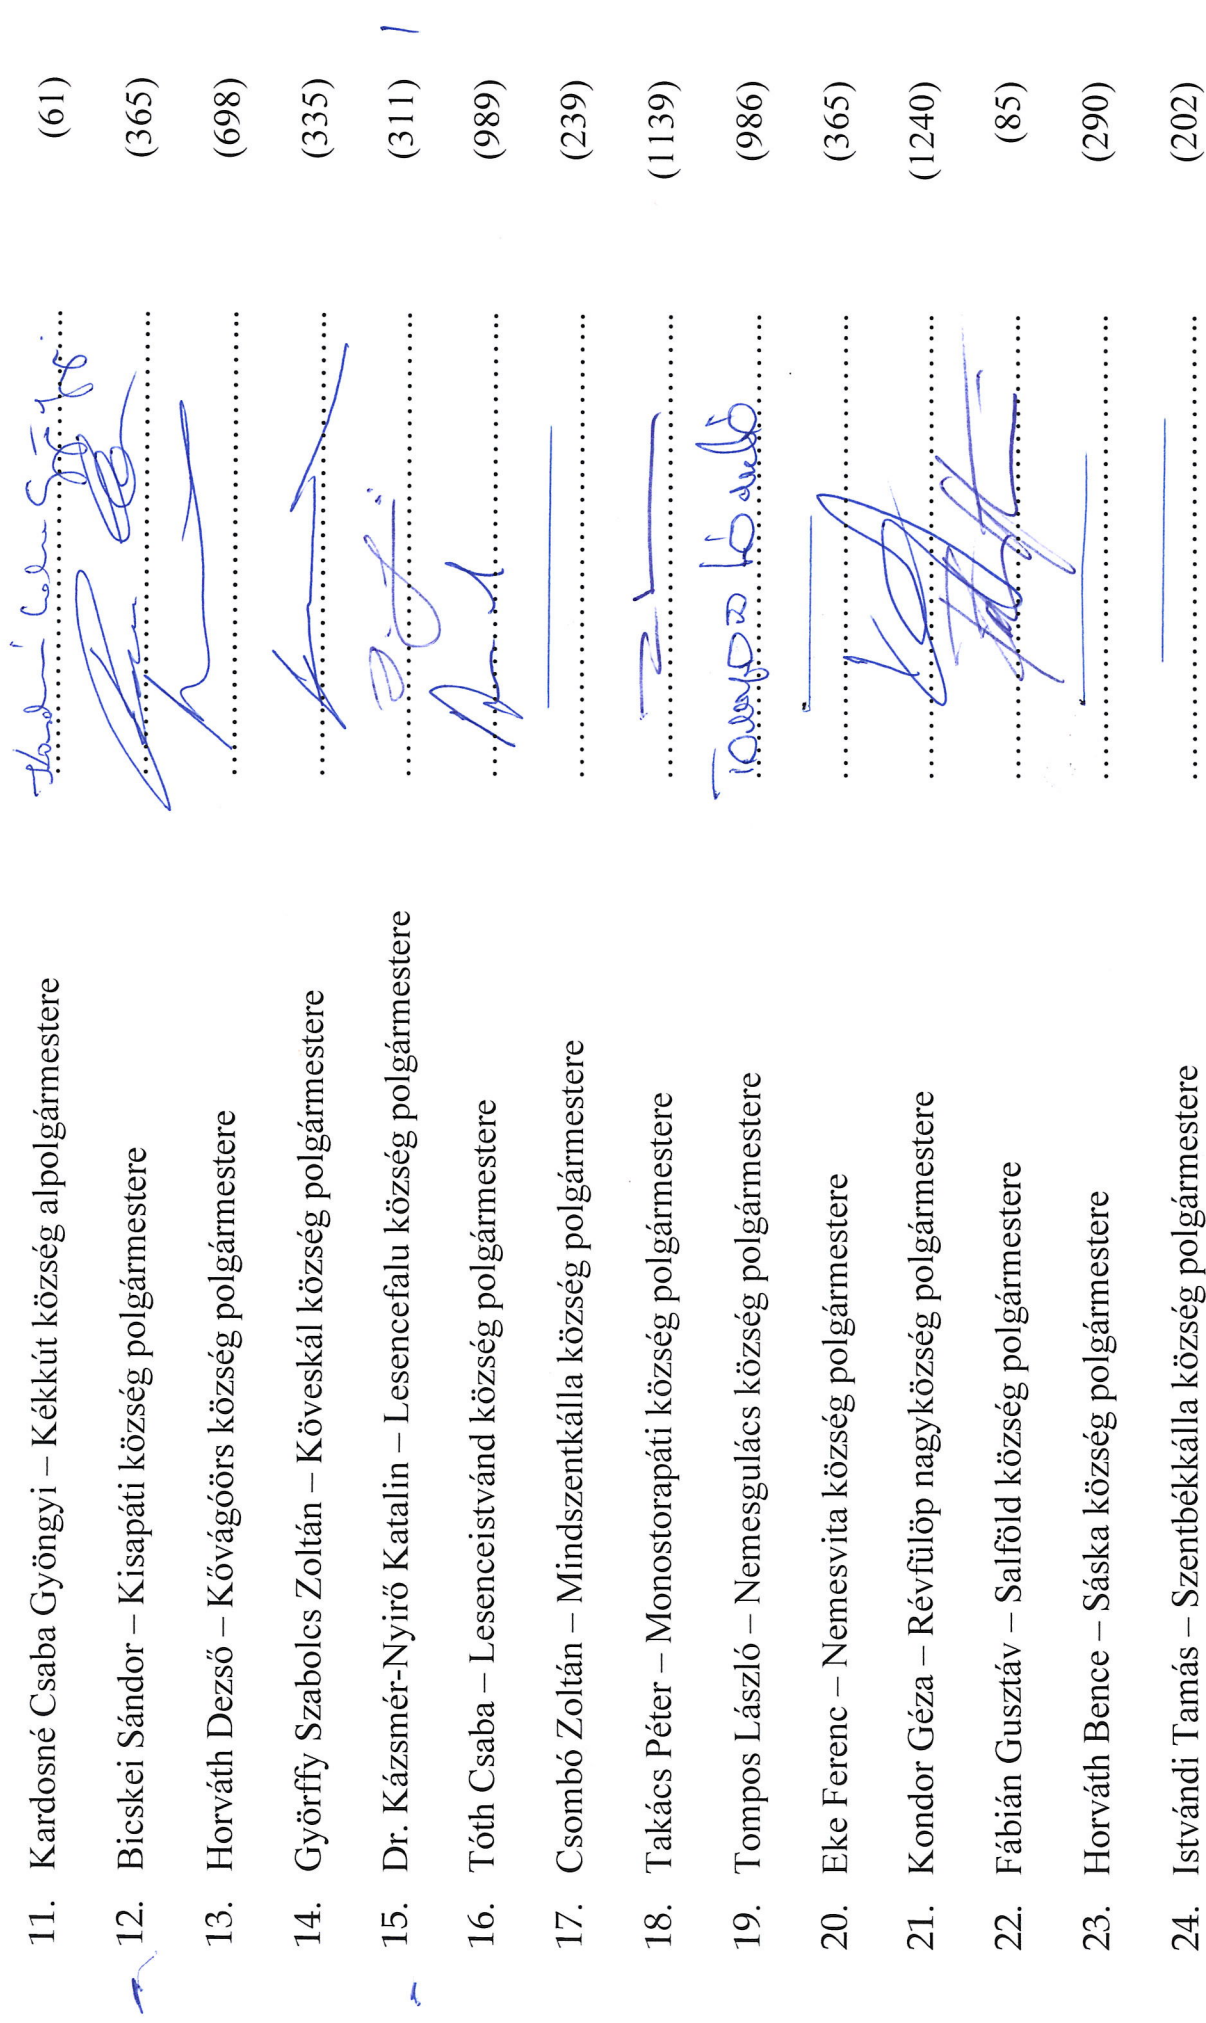 11. Kardosné Csaba Gyöngyi – Kékkút község alpolgármestere .................... (61)
12. Bicskei Sándor – Kisapáti község polgármestere .................... (365)
13. Horváth Dezső – Kővágóörs község polgármestere .................... (698)
14. Györffy Szabolcs Zoltán – Köveskál község polgármestere .................... (335)
15. Dr. Kázsmér-Nyirő Katalin – Lesencefalu község polgármestere .................... (311)
16. Tóth Csaba – Lesenceistvánd község polgármestere .................... (989)
17. Csombó Zoltán – Mindszentkálla község polgármestere .................... (239)
18. Takács Péter – Monostorapáti község polgármestere .................... (1139)
19. Tompos László – Nemesgulács község polgármestere .................... (986)
20. Eke Ferenc – Nemesvita község polgármestere .................... (365)
21. Kondor Géza – Révfülöp nagyközség polgármestere .................... (1240)
22. Fábián Gusztáv – Salföld község polgármestere .................... (85)
23. Horváth Bence – Sáska község polgármestere .................... (290)
24. Istvándi Tamás – Szentbékkálla község polgármestere .................... (202)